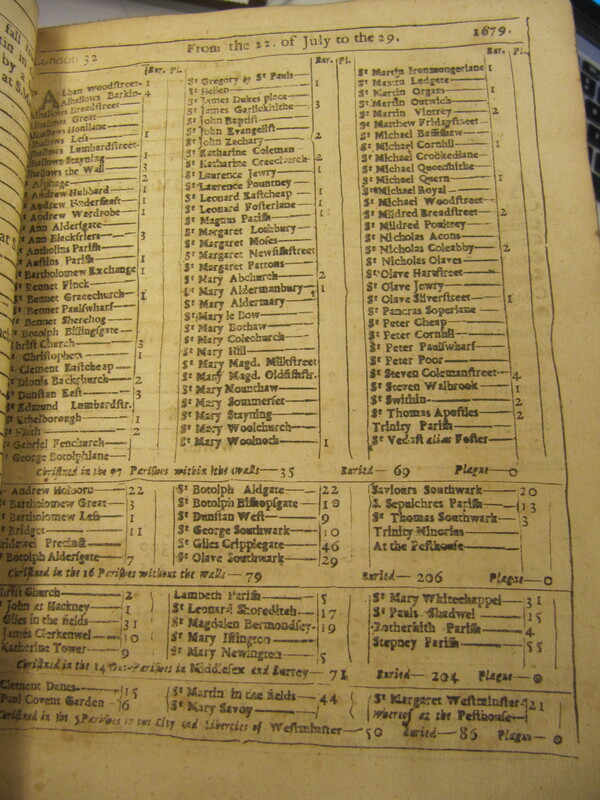 London 32
From the 22. of July to the 29.
1679.
Bur. Pl.
Alban Woodstreet— 1
Alhallows Barkin— 4
Alhallows Breadstreet—
Alhallows Great—
Alhallows Honilane—
Alhallows Less— 1
Alhallows Lumbardstreet—
Alhallows Stayning— 1
Alhallows the Wall— 3
Alphage— 2
Andrew Hubbard— 1
Andrew Undershaft— 1
Andrew Wardrobe— 1
Ann Aldersgate—
Ann Blackfriers— 3
Antholins Parish—
Austins Parish— 1
Bartholomew Exchange 1
Bennet Finck—
Bennet Gracechurch— 1
Bennet Paulswharf—
Bennet Sherehog—
Botolph Billingsgate—
Christ Church— 3
Christophers— 1
Clement Eastcheap—
Dionis Backchurch— 2
Dunstan East— 3
Edmund Lumbardstr.
Ethelborough— 1
Faith— 2
Gabriel Fenchurch—
George Botolphlane—
Bur. Pl.
St Gregory by St Pauls— 1
St Hellen—
St James Dukes place— 3
St James Garlickhithe— 1
St John Baptist—
St John Evangelist—
St John Zachary— 2
St Katharine Coleman
St Katharine Creechurch— 2
St Laurence Jewry— 1
St Lawrence Pountney—
St Leonard Eastcheap— 1
St Leonard Fosterlane— 1
St Magnus Parish— 1
St Margaret Lothbury—
St Margaret Moses—
St Margaret Newfishstreet
St Margaret Pattons—
St Mary Abchurch— 2
St Mary Aldermanbury— 1
St Mary Aldermary—
St Mary le Bow—
St Mary Bothaw—
St Mary Colechurch—
St Mary Hill—
St Mary Magd. Milkstreet
St Mary Magd. Oldfishstr.
St Mary Mounthaw—
St Mary Sommerset—
St Mary Stayning—
St Mary Woolchurch—
St Mary Woolnoth— 1
Bur. Pl.
St Martin Ironmongerlane 1
St Martin Ludgate—
St Martin Organs— 1
St Martin Outwich—
St Martin Vintrey— 2
St Matthew Fridaystreet—
St Michael Bassishaw—
St Michael Cornhil— 1
St Michael Crookedlane—
St Michael Queenhithe—
St Michael Quern— 1
St Michael Royal—
St Michael Woodstreet—
St Mildred Breadstreet— 2
St Mildred Poultrey—
St Nicholas Acons—
St Nicholas Coleabby— 2
St Nicholas Olaves—
St Olave Hartstreet—
St Olave Jewry—
St Olave Silverstreet— 1
St Pancras Soperlane—
St Peter Cheap—
St Peter Cornhil—
St Peter Paulswharf—
St Peter Poor—
St Steven Colemanstreet— 4
St Steven Walbrook— 1
St Swithin— 2
St Thomas Apostles— 2
Trinity Parish—
St Vedast alias Foster—
Christned in the 97 Parishes within the walls— 35 Buried— 69 Plague— 0
Andrew Holborn— 22
Bartholomew Great— 3
Bartholomew Less— 1
Bridget— 11
Bridewel Precinct—
Botolph Aldersgate— 7
St Botolph Aldgate— 22
St Botolph Bishopsgate— 18
St Dunstan West— 9
St George Southwark— 10
St Giles Cripplegate— 46
St Olave Southwark— 29
Saviours Southwark— 20
S. Sepulchres Parish— 13
St Thomas Southwark— 3
Trinity Minories—
At the Pesthouse—
Christned in the 16 Parishes without the walls— 79 Buried— 206 Plague— 0
Christ Church— 2
John at Hackney— 1
Giles in the fields— 31
James Clerkenwel— 10
Katherine Tower— 9
Lambeth Parish— 5
St Leonard Shoreditch— 17
St Magdalen Bermondsey— 19
St Mary Islington—
St Mary Newington— 5
St Mary Whitechappel— 31
St Pauls Shadwel— 15
Rotherhith Parish— 4
Stepney Parish— 55
Christned in the 14 Out-Parishes in Middlesex and Surrey— 71 Buried— 204 Plague— 0
Clement Danes— 15
Paul Covent Garden— 6
St Martin in the fields— 44
St Mary Savoy—
St Margaret Westminster— 21
Whereof at the Pesthouse—
Christned in the 5 Parishes in the City and Liberties of Westminster— 50 Buried— 86 Plague— 0